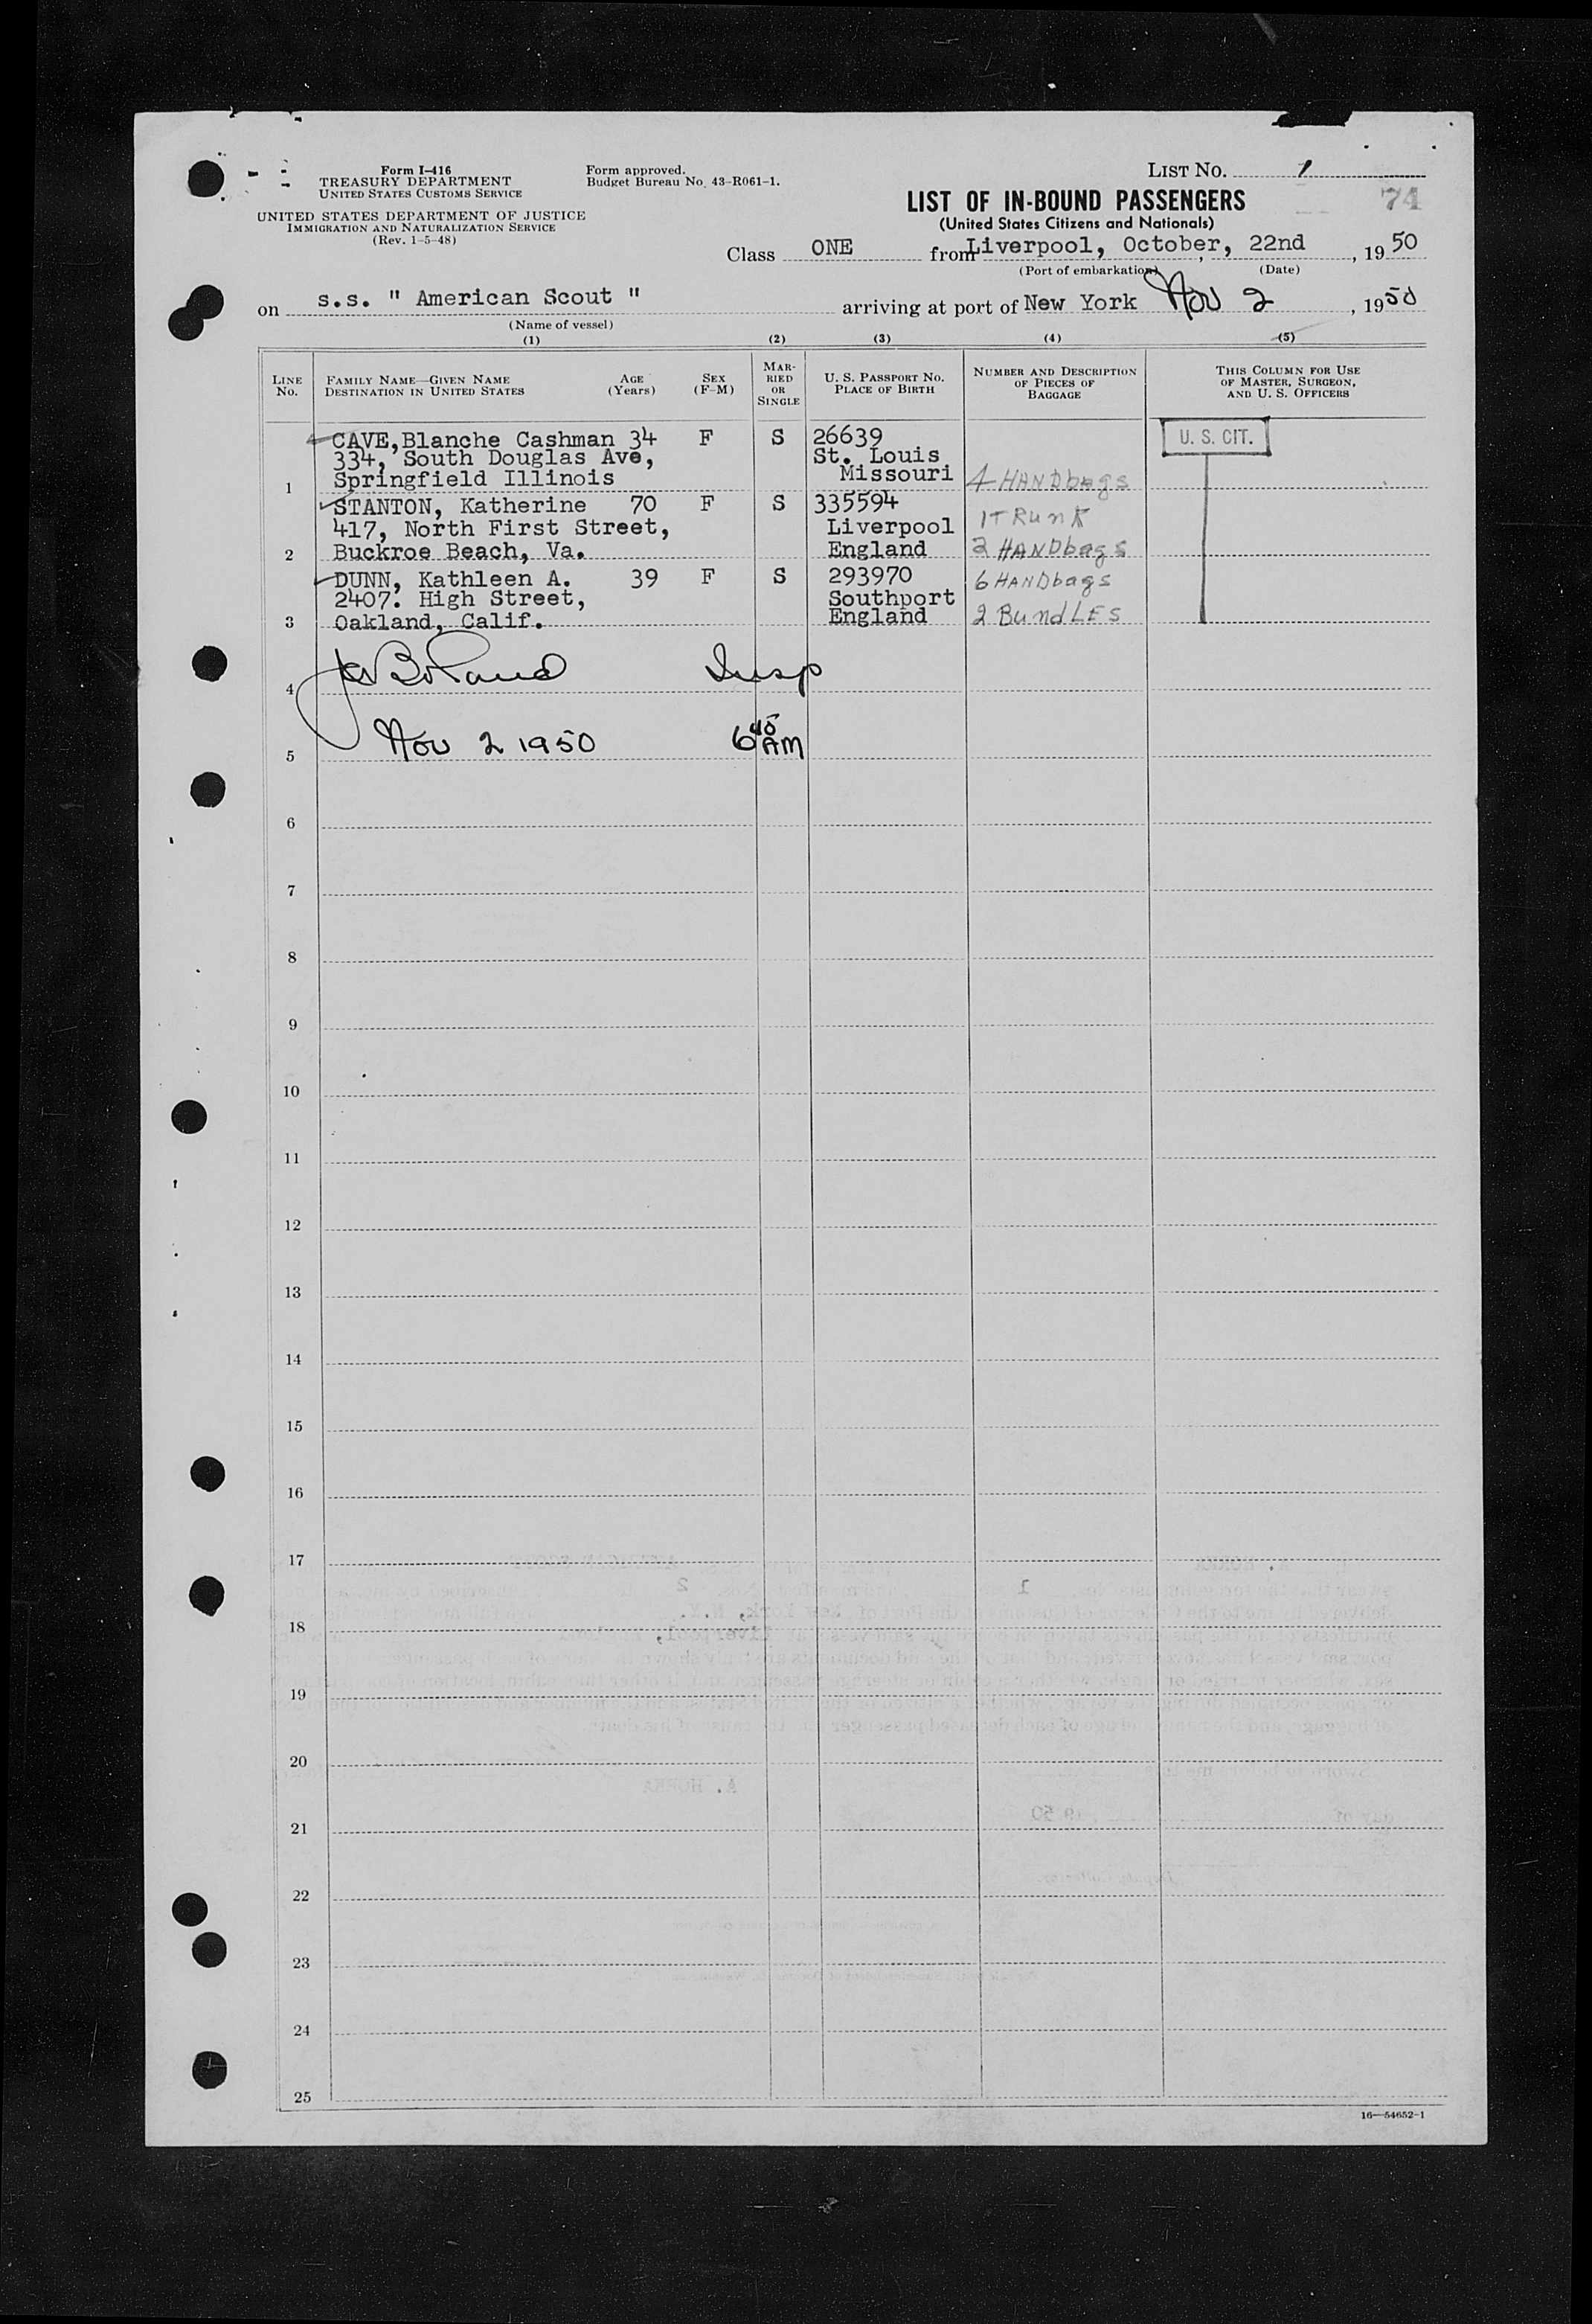 Form I-416
TREASURY DEPARTMENT
UNITED STATES CUSTOMS SERVICE
UNITED STATES DEPARTMENT OF JUSTICE
IMMIGRATION AND NATURALIZATION SERVICE
(Rev. 1-5-48)
Form approved.
Budget Bureau No. 43-R061-1.
LIST No. 1
LIST OF IN-BOUND PASSENGERS
74
(United States Citizens and Nationals)
Class ONE from Liverpool, October, 22nd, 1950
(Port of embarkation) (Date)
on s.s. " American Scout " arriving at port of New York Nov 2, 1950
(Name of vessel)
(1) (2) (3) (4) (5)
LINE No.
FAMILY NAME—GIVEN NAME
DESTINATION IN UNITED STATES
AGE (Years)
SEX (F-M)
MARRIED OR SINGLE
U. S. PASSPORT NO.
PLACE OF BIRTH
NUMBER AND DESCRIPTION OF PIECES OF BAGGAGE
THIS COLUMN FOR USE OF MASTER, SURGEON, AND U. S. OFFICERS
CAVE, Blanche Cashman 34 F S 26639 U. S. CIT.
334, South Douglas Ave, St. Louis
1 Springfield Illinois Missouri 4 HANDbags
STANTON, Katherine 70 F S 335594
417, North First Street, Liverpool 1 TRunk
2 Buckroe Beach, Va. England 2 HANDbags
DUNN, Kathleen A. 39 F S 293970 6 HANDbags
2407. High Street, Southport
3 Oakland, Calif. England 2 BundLES
4 Boland Insp
5 Nov 2 1950 6 40 AM
6
7
8
9
10
11
12
13
14
15
16
17
18
19
20
21
22
23
24
25
16—54652-1